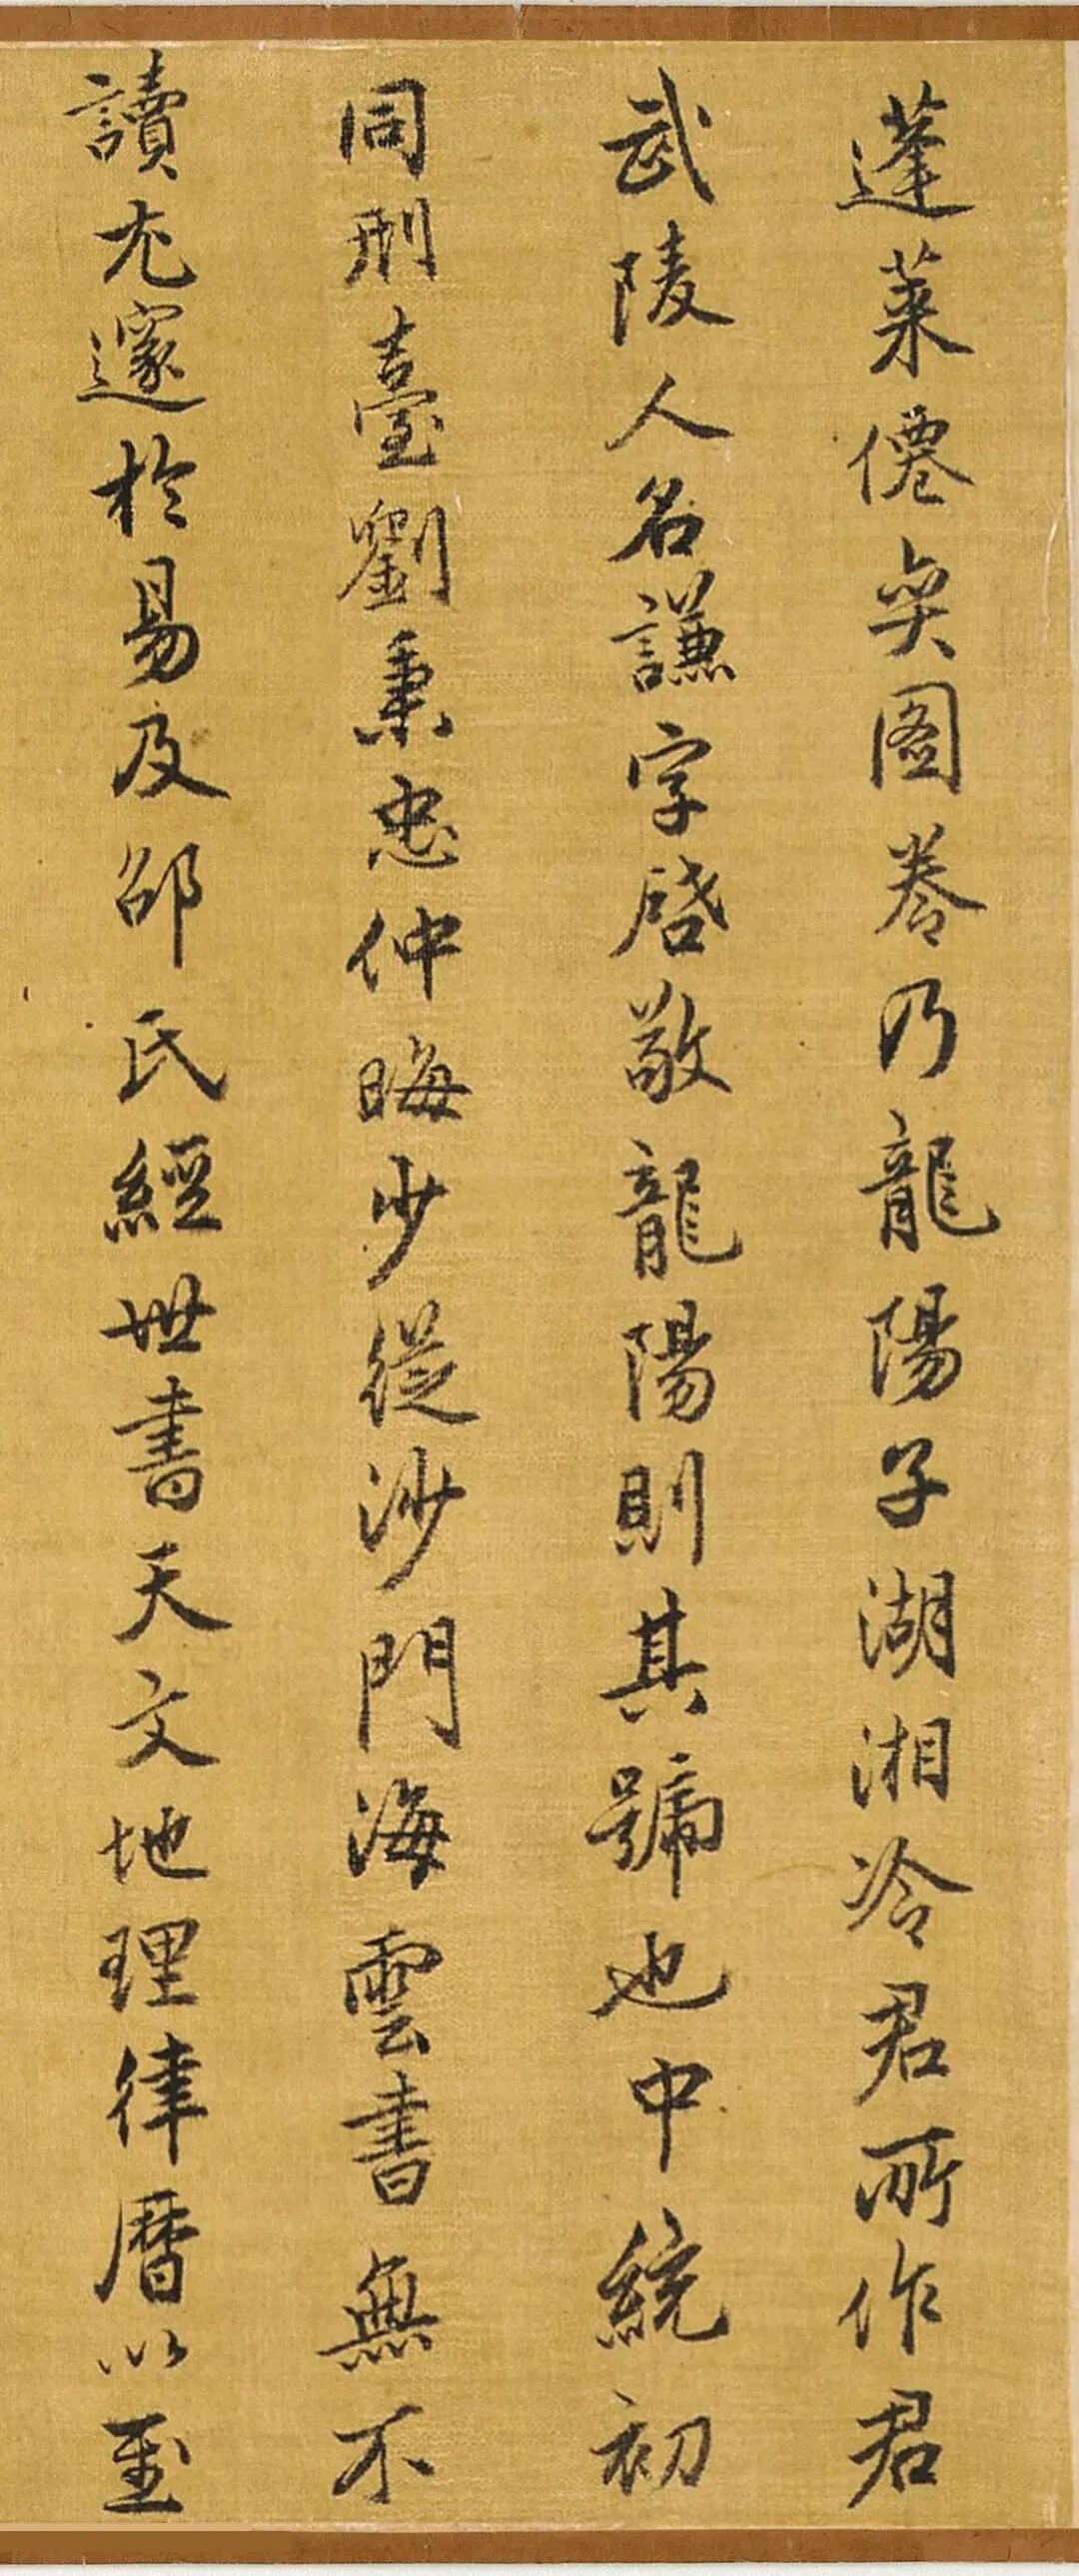 蓬萊僊奕圖卷乃龍陽子湖湘冷君所作君
武陵人名謙字啓敬龍陽則其號也中統初
同刑臺劉秉忠仲晦少從沙門海雲書無不
讀尤邃於易及邵氏經世書天文地理律曆以至